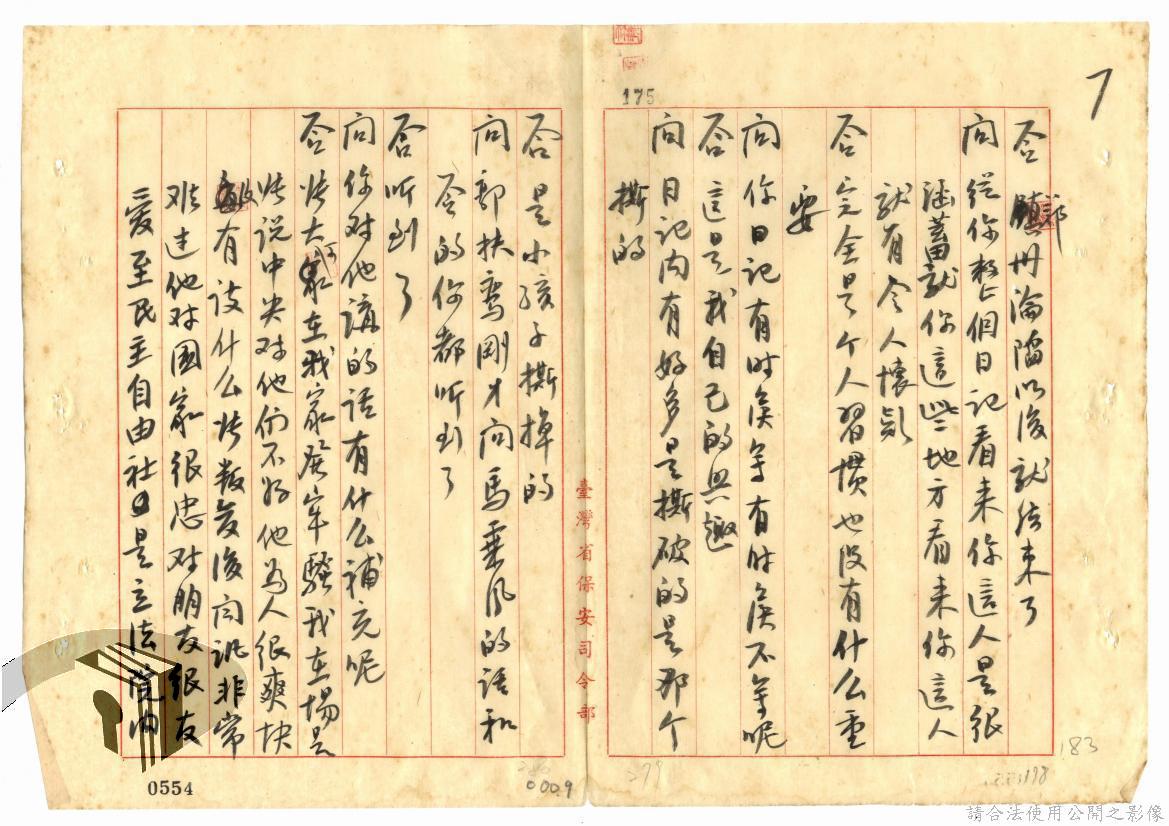 7
175
答 鎮册淪陷以後就结束了
郭
问 從你整個日记看来你這人是很
涵蓄就你這些地方看来你這人
就有令人懷疑
答 完全是个人習惯也没有什么重
要
问 你日记有时侯寫有时侯不寫呢
答 這是我自己的興趣
问 日记内有好多是撕破的是那个
撕的
臺灣省保安司令部
答 是小孩子撕掉的
问 郭扶鸾剛才问馬乘风的话和
答的你都听到了
答 听到了
问 你对他講的话有什么補充呢
答 张大家在我家發牢騷我在場是
张说中央对他们不好他為人很爽快
没有谈什么张叛变後同訊非常
难过他对國家很忠对朋友很友
爱至民主自由社是立法院内
0554
0009
279
183
198
請合法使用公開之影像